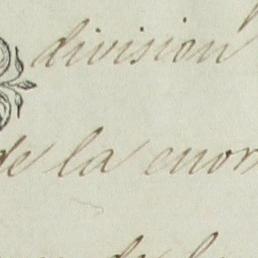 division
de la enor
de la